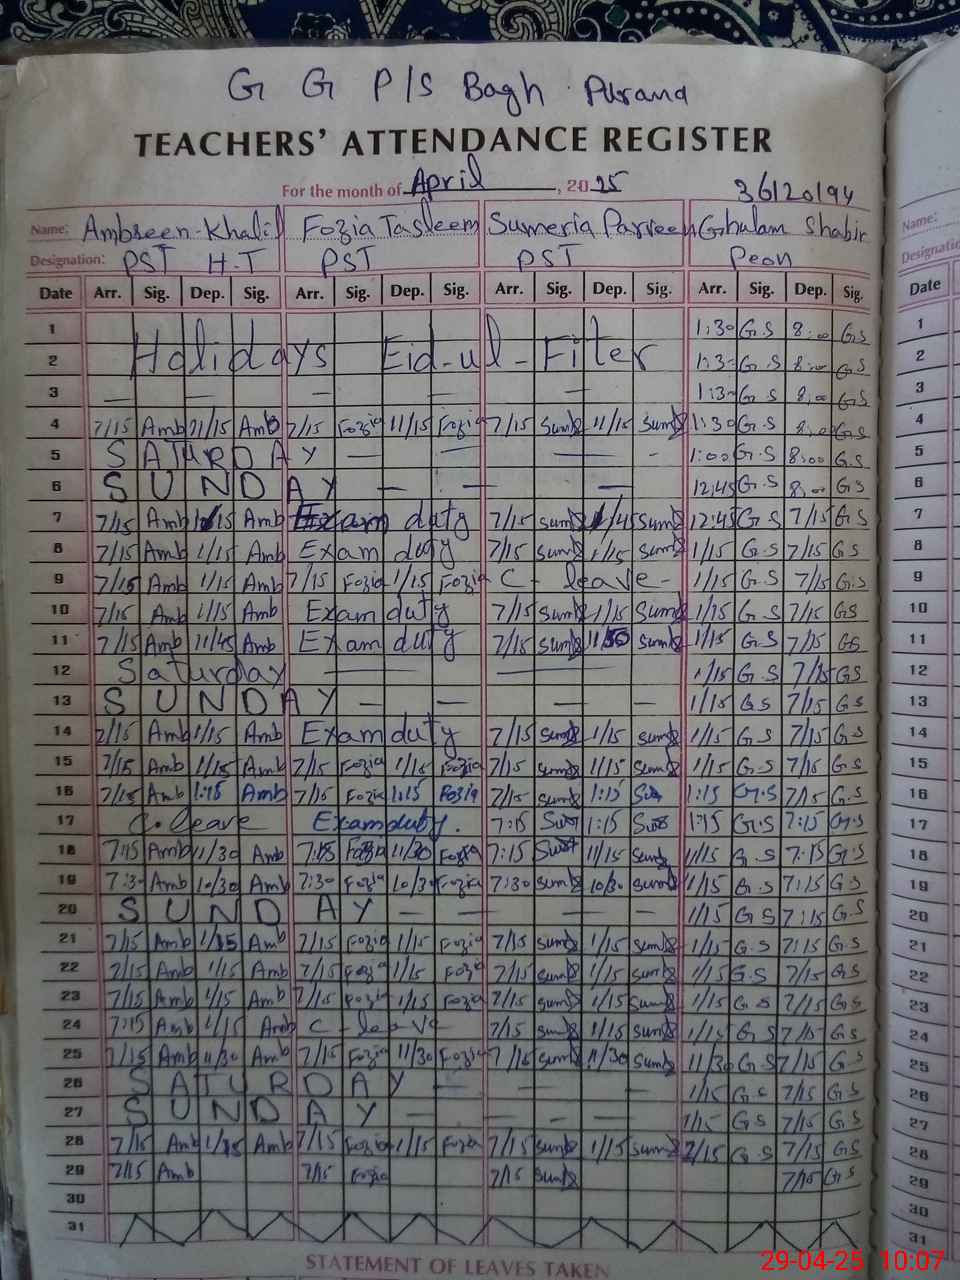 G G P/S Bagh Purana
TEACHERS' ATTENDANCE REGISTER
For the month of April, 2025
36120194
Name: Ambreen Khalil Fozia Tasleem Sumeria Parveen Ghulam Shabir
Designation: PST H.T PST PST Peon
Date Arr. Sig. Dep. Sig. Arr. Sig. Dep. Sig. Arr. Sig. Dep. Sig. Arr. Sig. Dep. Sig.
1 1:30 G.S 8:00 G.S
2 Holidays Eid-ul-Fiter 1:30 G.S 8:00 G.S
3 — — — — — 1:30 G.S 8:00 G.S
4 7/15 Amb 11/15 Amb 7/15 Fozia 11/15 Fozia 7/15 Sum 11/15 Sum 1:30 G.S 8:00 G.S
5 SATURDAY — — — - 1:00 G.S 8:00 G.S
6 SUNDAY — — — 12:45 G.S 8:00 G.S
7 7/15 Amb Amb Exam duty 7/15 Sum Sum 12:45 G.S 7/15 G.S
8 7/15 Amb 1/15 Amb Exam duty 7/15 Sum 1/15 Sum 1/15 G.S 7/15 G.S
9 7/15 Amb 1/15 Amb 7/15 Fozia 1/15 Fozia C-leave- 1/15 G.S 7/15 G.S
10 7/15 Amb 1/15 Amb Exam duty 7/15 Sum 1/15 Sum 1/15 G.S 7/15 GS
11 7/15 Amb 11/45 Amb Exam duty 7/15 Sum Sum 1/15 G.S 7/15 GS
12 Saturday — — 1/15 G.S 7/15 GS
13 SUNDAY — — — — 1/15 GS 7/15 GS
14 7/15 Amb 1/15 Amb Exam duty 7/15 Sum 1/15 Sum 1/15 G.S 7/15 G.S
15 7/15 Amb 1/15 Amb 7/15 Fozia 1/15 Fozia 7/15 Sum 1/15 Sum 1/15 G.S 7/15 G.S
16 7/15 Amb 1:15 Amb 7/15 Fozia 1:15 Fozia 7/15 Sum 1:15 1:15 G.S 7/15 G.S
17 C.leave Exam duty. 7:15 1:15 1:15 G.S 7:15 G.S
18 7:15 Amb 11/30 Amb 7:15 Fozia 11/30 Fozia 7:15 11/15 Sum 1/15 G.S 7:15 G.S
19 7:30 Amb 10/30 Amb 7:30 Fozia 10/30 Fozia 7:30 Sum 10/30 Sum 1/15 G.S 7:15 G.S
20 SUNDAY — — — — 1/15 GS 7:15 G.S
21 7/15 Amb 1/15 Amb 7/15 Fozia 1/15 Fozia 7/15 Sum 1/15 Sum 1/15 G.S 7:15 G.S
22 7/15 Amb 1/15 Amb 7/15 Fozia 1/15 Fozia 7/15 Sum 1/15 Sum 1/15 G.S 7/15 G.S
23 7/15 Amb 1/15 Amb 7/15 Fozia 1/15 Fozia 7/15 Sum 1/15 Sum 1/15 G.S 7/15 G.S
24 7:15 Amb 1/15 Amb C-leave 7/15 Sum 1/15 Sum 1/15 G.S 7/15 G.S
25 7/15 Amb 11/30 Amb 7/15 Fozia 11/30 Fozia 7/15 Sum 11/30 Sum 11/30 G.S 7/15 G.S
26 SATURDAY — — — 1/15 G.S 7/15 GS
27 SUNDAY — — — — 1/15 GS 7/15 GS
28 7/15 Amb 1/15 Amb 7/15 Fozia 1/15 Fozia 7/15 Sum 1/15 Sum 7/15 G.S 7/15 GS
29 7/15 Amb 7/15 Fozia 7/15 Sum 7/15 G.S
30
31
STATEMENT OF LEAVES TAKEN
Name:
Date
1
2
3
4
5
6
7
8
9
10
11
12
13
14
15
16
17
18
19
20
21
22
23
24
25
26
27
28
29
30
31
29-04-25 10:07